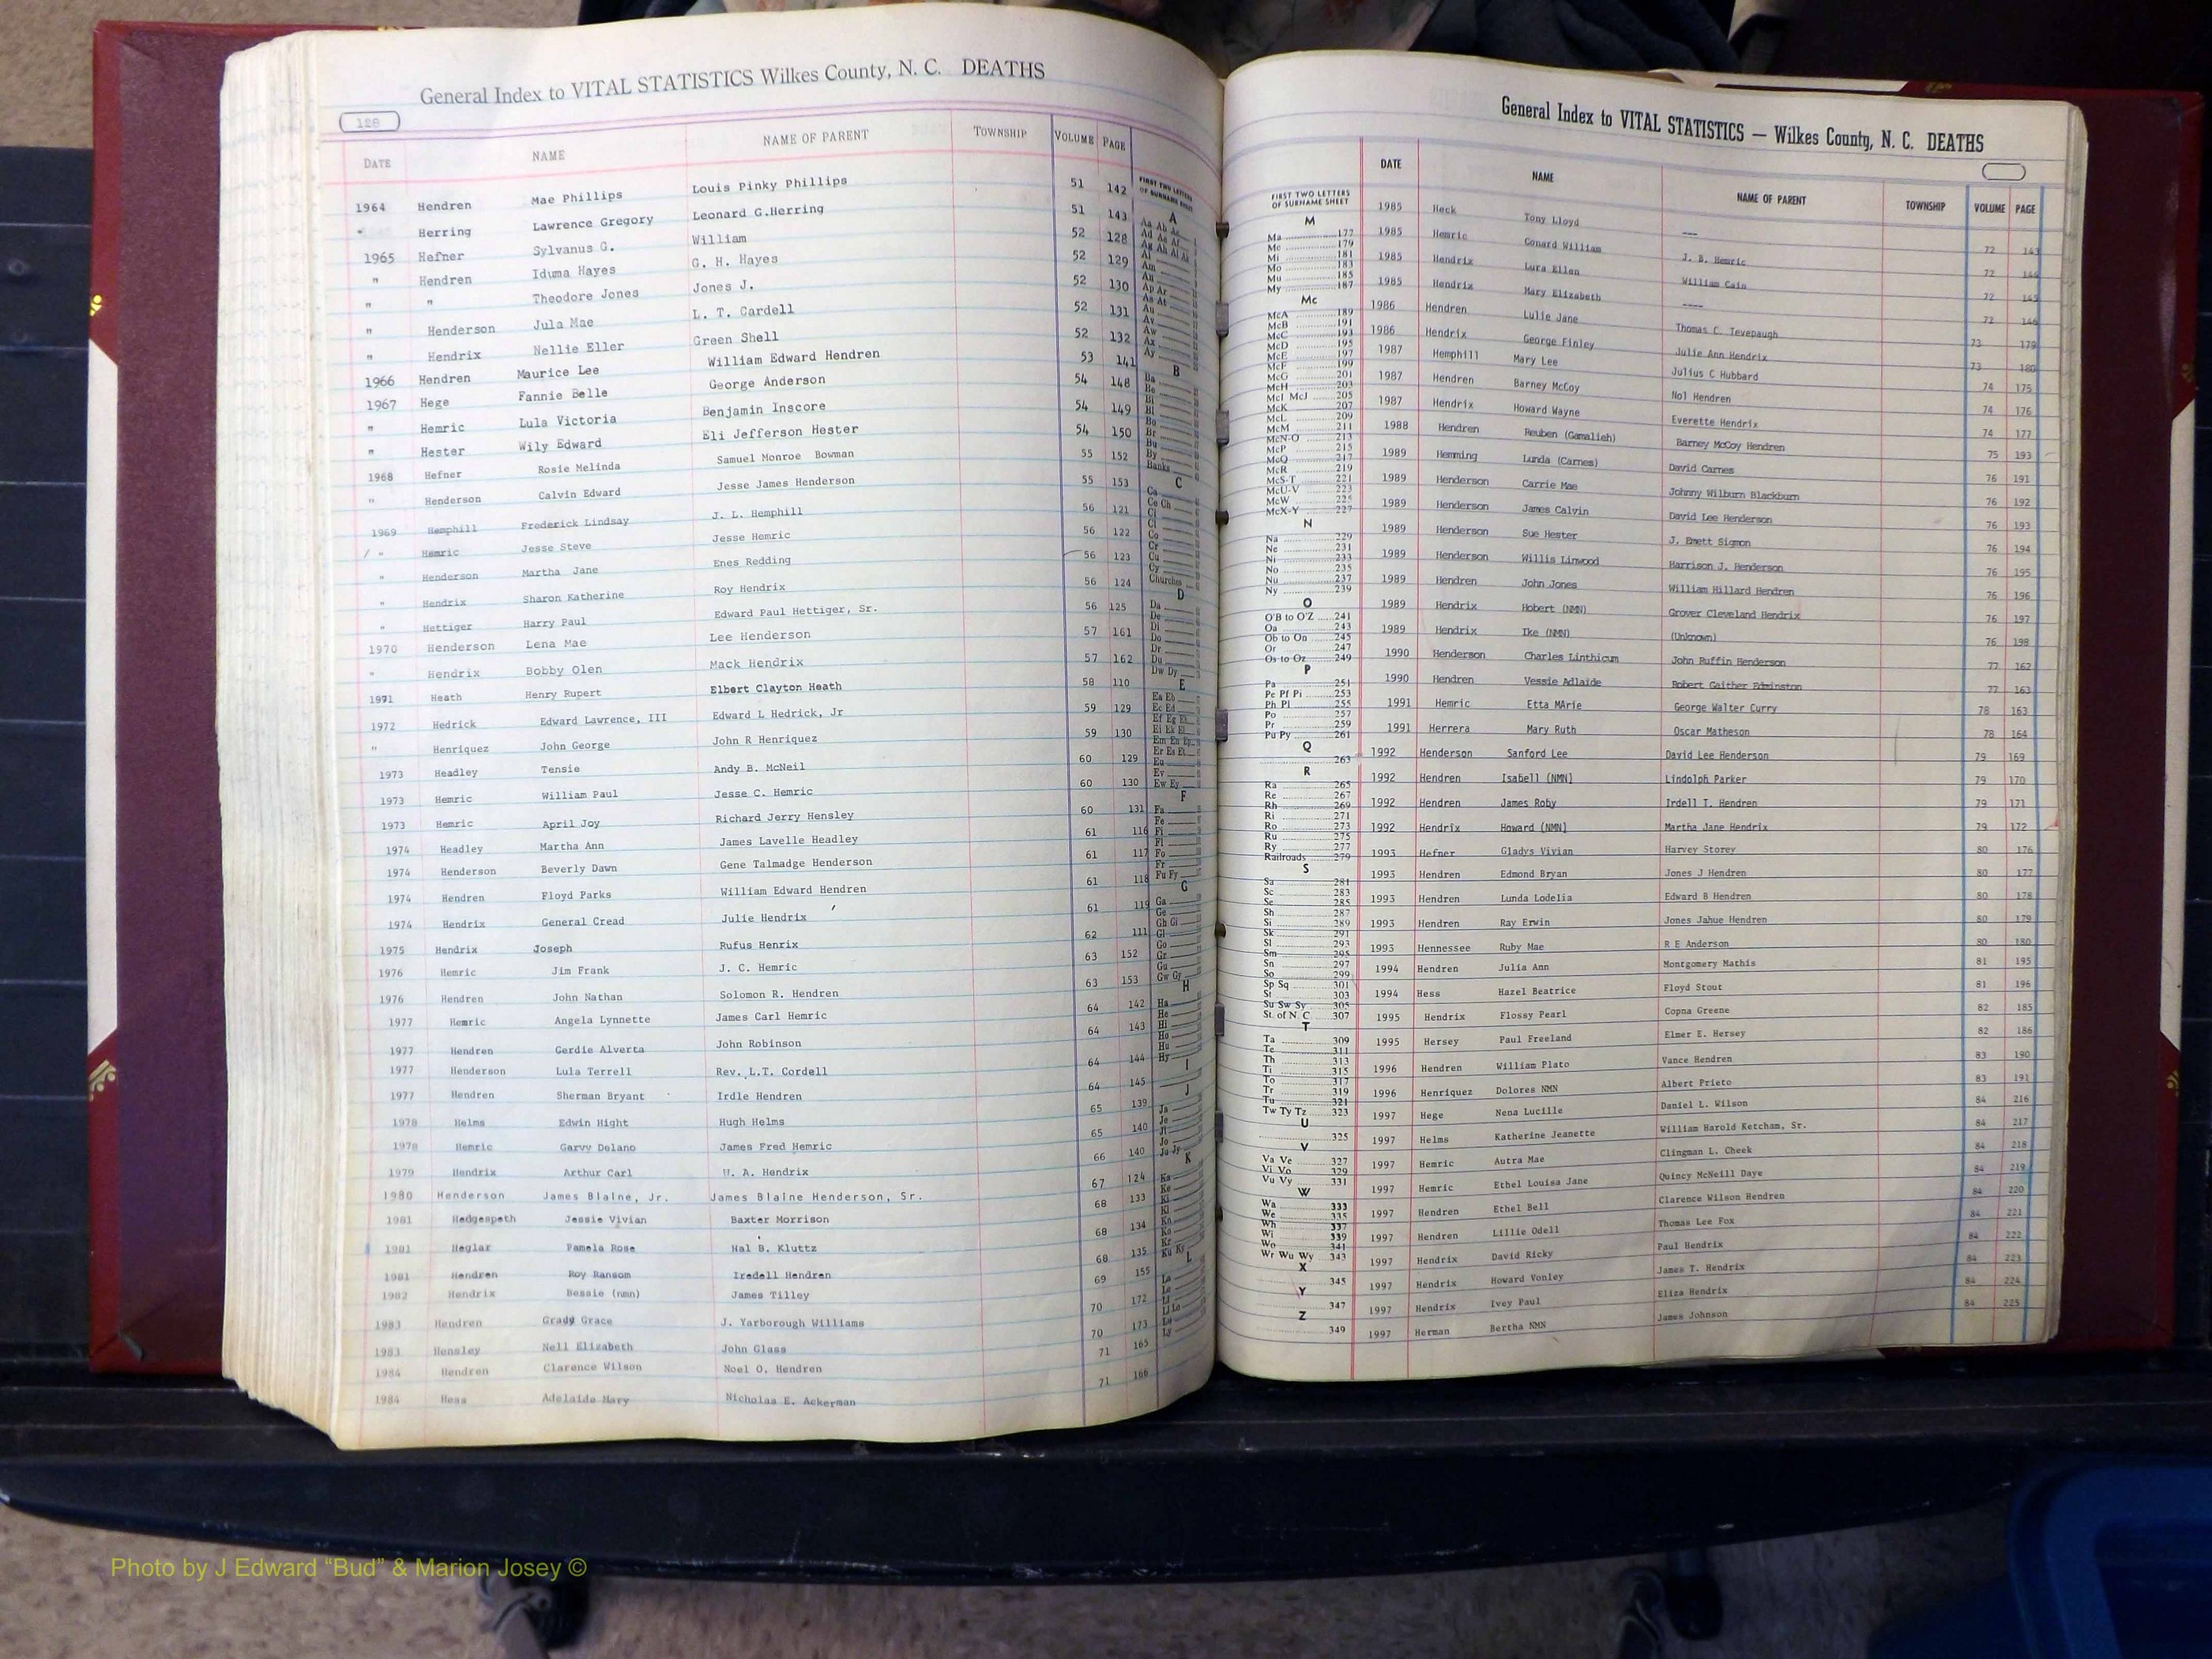 General Index to VITAL STATISTICS Wilkes County, N. C. DEATHS
128
DATE NAME NAME OF PARENT TOWNSHIP VOLUME PAGE
1964 Hendren Mae Phillips Louis Pinky Phillips 51 142
" Herring Lawrence Gregory Leonard G.Herring 51 143
1965 Hefner Sylvanus G. William 52 128
" Hendren Iduma Hayes G. H. Hayes 52 129
" " Theodore Jones Jones J. 52 130
" Henderson Jula Mae L. T. Cardell 52 131
" Hendrix Nellie Eller Green Shell 52 132
1966 Hendren Maurice Lee William Edward Hendren 53 141
1967 Hege Fannie Belle George Anderson 54 148
" Hemric Lula Victoria Benjamin Inscore 54 149
" Hester Wily Edward Eli Jefferson Hester 54 150
1968 Hefner Rosie Melinda Samuel Monroe Bowman 55 152
" Henderson Calvin Edward Jesse James Henderson 55 153
1969 Hemphill Frederick Lindsay J. L. Hemphill 56 121
" Hemric Jesse Steve Jesse Hemric 56 122
" Henderson Martha Jane Enes Redding 56 123
" Hendrix Sharon Katherine Roy Hendrix 56 124
" Hettiger Harry Paul Edward Paul Hettiger, Sr. 56 125
1970 Henderson Lena Mae Lee Henderson 57 161
" Hendrix Bobby Olen Mack Hendrix 57 162
1971 Heath Henry Rupert Elbert Clayton Heath 58 110
1972 Hedrick Edward Lawrence, III Edward L Hedrick, Jr 59 129
" Henriquez John George John R Henriquez 59 130
1973 Headley Tensie Andy B. McNeil 60 129
1973 Hemric William Paul Jesse C. Hemric 60 130
1973 Hemric April Joy Richard Jerry Hensley 60 131
1974 Headley Martha Ann James Lavelle Headley 61 116
1974 Henderson Beverly Dawn Gene Talmadge Henderson 61 117
1974 Hendren Floyd Parks William Edward Hendren 61 118
1974 Hendrix General Cread Julie Hendrix 61 119
1975 Hendrix Joseph Rufus Henrix 62 111
1976 Hemric Jim Frank J. C. Hemric 63 152
1976 Hendren John Nathan Solomon R. Hendren 63 153
1977 Hemric Angela Lynnette James Carl Hemric 64 142
1977 Hendren Gerdie Alverta John Robinson 64 143
1977 Henderson Lula Terrell Rev. L.T. Cordell 64 144
1977 Hendren Sherman Bryant Irdle Hendren 64 145
1978 Helms Edwin Hight Hugh Helms 65 139
1978 Hemric Garvy Delano James Fred Hemric 65 140
1979 Hendrix Arthur Carl W. A. Hendrix 66 140
1980 Henderson James Blaine, Jr. James Blaine Henderson, Sr. 67 124
1981 Hedgespeth Jessie Vivian Baxter Morrison 68 133
1981 Heglar Pamela Rose Hal B. Kluttz 68 134
1981 Hendren Roy Ransom Iredell Hendren 68 135
1982 Hendrix Bessie (nmn) James Tilley 69 155
1983 Hendren Grady Grace J. Yarborough Williams 70 172
1983 Hensley Nell Elizabeth John Glass 70 173
1984 Hendren Clarence Wilson Noel O. Hendren 71 165
1984 Hess Adelaide Mary Nicholas E. Ackerman 71 166
FIRST TWO LETTERS
OF SURNAME SHEET
A
Aa Ab Ac
Ad Ae Af
Ag Ah Ai Ak
Al
Am
An
Ap Ar
As At
Au
Av
Aw
Ax
Ay
B
Ba
Be
Bi
Bl
Bo
Br
Bu
By
Banks
C
Ca
Ce Ch
Ci
Cl
Co
Cr
Cu
Cy
Churches
D
Da
De
Di
Do
Dr
Du
Dw Dy
E
Ea Eb
Ec Ed
Ef Eg Eh
Ei Ek El
Em En Ep
Er Es Et
Eu
Ev
Ew Ey
F
Fa
Fe
Fi
Fl
Fo
Fr
Fu Fy
G
Ga
Ge
Gh Gi
Gl
Go
Gr
Gu
Gw Gy
H
Ha
He
Hi
Ho
Hu
Hy
I
J
Ja
Je
Ji
Jo
Ju Jy
K
Ka
Ke
Ki
Kl
Kn
Ko
Kr
Ku Ky
L
La
Le
Li
Ll Lo
Lu
Ly
General Index to VITAL STATISTICS — Wilkes County, N. C. DEATHS
FIRST TWO LETTERS
OF SURNAME SHEET
M
Ma 177
Me 179
Mi 181
Mo 183
Mu 185
My 187
Mc
McA 189
McB 191
McC 193
McD 195
McE 197
McF 199
McG 201
McH 203
McI McJ 205
McK 207
McL 209
McM 211
McN-O 213
McP 215
McQ 217
McR 219
McS-T 221
McU-V 223
McW 225
McX-Y 227
N
Na 229
Ne 231
Ni 233
No 235
Nu 237
Ny 239
O
O'B to O'Z 241
Oa 243
Ob to On 245
Or 247
Os to Oz 249
P
Pa 251
Pe Pf Pi 253
Ph Pl 255
Po 257
Pr 259
Pu Py 261
Q
263
R
Ra 265
Re 267
Rh 269
Ri 271
Ro 273
Ru 275
Ry 277
Railroads 279
S
Sa 281
Sc 283
Se 285
Sh 287
Si 289
Sk 291
Sl 293
Sm 295
Sn 297
So 299
Sp Sq 301
St 303
Su Sw Sy 305
St. of N. C. 307
T
Ta 309
Te 311
Th 313
Ti 315
To 317
Tr 319
Tu 321
Tw Ty Tz 323
U
325
V
Va Ve 327
Vi Vo 329
Vu Vy 331
W
Wa 333
We 335
Wh 337
Wi 339
Wo 341
Wr Wu Wy 343
X
345
Y
347
Z
349
DATE NAME NAME OF PARENT TOWNSHIP VOLUME PAGE
1985 Heck Tony Lloyd --- 72 143
1985 Hemric Conard William J. B. Hemric 72 144
1985 Hendrix Lura Ellen William Cain 72 145
1985 Hendrix Mary Elizabeth ---- 72 146
1986 Hendren Lulie Jane Thomas C. Tevepaugh 73 179
1986 Hendrix George Finley Julie Ann Hendrix 73 180
1987 Hemphill Mary Lee Julius C Hubbard 74 175
1987 Hendren Barney McCoy Nol Hendren 74 176
1987 Hendrix Howard Wayne Everette Hendrix 74 177
1988 Hendren Reuben (Gamalieh) Barney McCoy Hendren 75 193
1989 Hemming Lunda (Carnes) David Carnes 76 191
1989 Henderson Carrie Mae Johnny Wilburn Blackburn 76 192
1989 Henderson James Calvin David Lee Henderson 76 193
1989 Henderson Sue Hester J. Emett Sigmon 76 194
1989 Henderson Willis Linwood Harrison J. Henderson 76 195
1989 Hendren John Jones William Hillard Hendren 76 196
1989 Hendrix Hobert (NMN) Grover Cleveland Hendrix 76 197
1989 Hendrix Ike (NMN) (Unknown) 76 198
1990 Henderson Charles Linthicum John Ruffin Henderson 77 162
1990 Hendren Vessie Adlaide Robert Gaither Edminston 77 163
1991 Hemric Etta MArie George Walter Curry 78 163
1991 Herrera Mary Ruth Oscar Matheson 78 164
1992 Henderson Sanford Lee David Lee Henderson 79 169
1992 Hendren Isabell (NMN] Lindolph Parker 79 170
1992 Hendren James Roby Irdell T. Hendren 79 171
1992 Hendrix Howard (NMN] Martha Jane Hendrix 79 172
1993 Hefner Gladys Vivian Harvey Storey 80 176
1993 Hendren Edmond Bryan Jones J Hendren 80 177
1993 Hendren Lunda Lodelia Edward B Hendren 80 178
1993 Hendren Ray Erwin Jones Jahue Hendren 80 179
1993 Hennessee Ruby Mae R E Anderson 80 180
1994 Hendren Julia Ann Montgomery Mathis 81 195
1994 Hess Hazel Beatrice Floyd Stout 81 196
1995 Hendrix Flossy Pearl Copna Greene 82 185
1995 Hersey Paul Freeland Elmer E. Hersey 82 186
1996 Hendren William Plato Vance Hendren 83 190
1996 Henriquez Dolores NMN Albert Prieto 83 191
1997 Hege Nena Lucille Daniel L. Wilson 84 216
1997 Helms Katherine Jeanette William Harold Ketcham, Sr. 84 217
1997 Hemric Autra Mae Clingman L. Cheek 84 218
1997 Hemric Ethel Louisa Jane Quincy McNeill Daye 84 219
1997 Hendren Ethel Bell Clarence Wilson Hendren 84 220
1997 Hendren Lillie Odell Thomas Lee Fox 84 221
1997 Hendrix David Ricky Paul Hendrix 84 222
1997 Hendrix Howard Vonley James T. Hendrix 84 223
1997 Hendrix Ivey Paul Eliza Hendrix 84 224
1997 Herman Bertha NMN James Johnson 84 225
Photo by J Edward “Bud” & Marion Josey ©